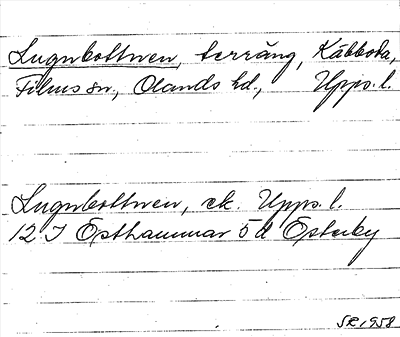 Lugnbottnen, terräng, Kåbboda,
Films sn, Olands hd, Upps. l.
Lugnbottnen, ek. Upps. l.
12 I Östhammar 5 d Österby
SR 1958